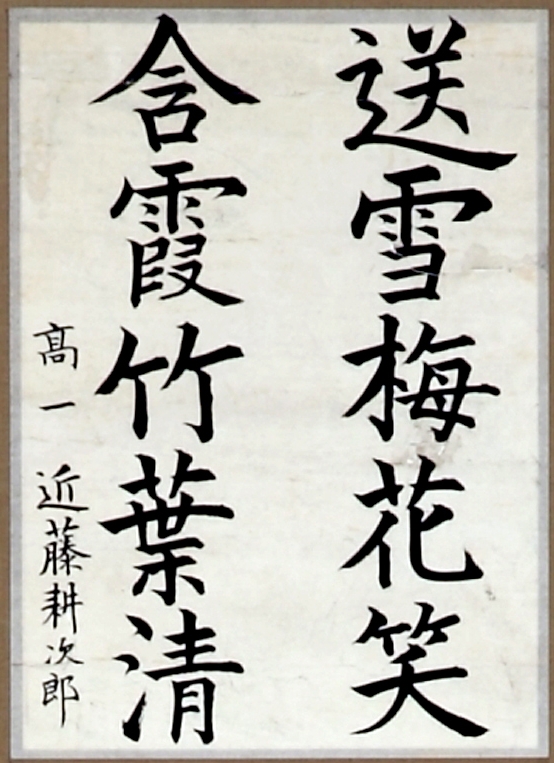 送雪梅花笑
含霞竹葉清
髙一 近藤耕次郎